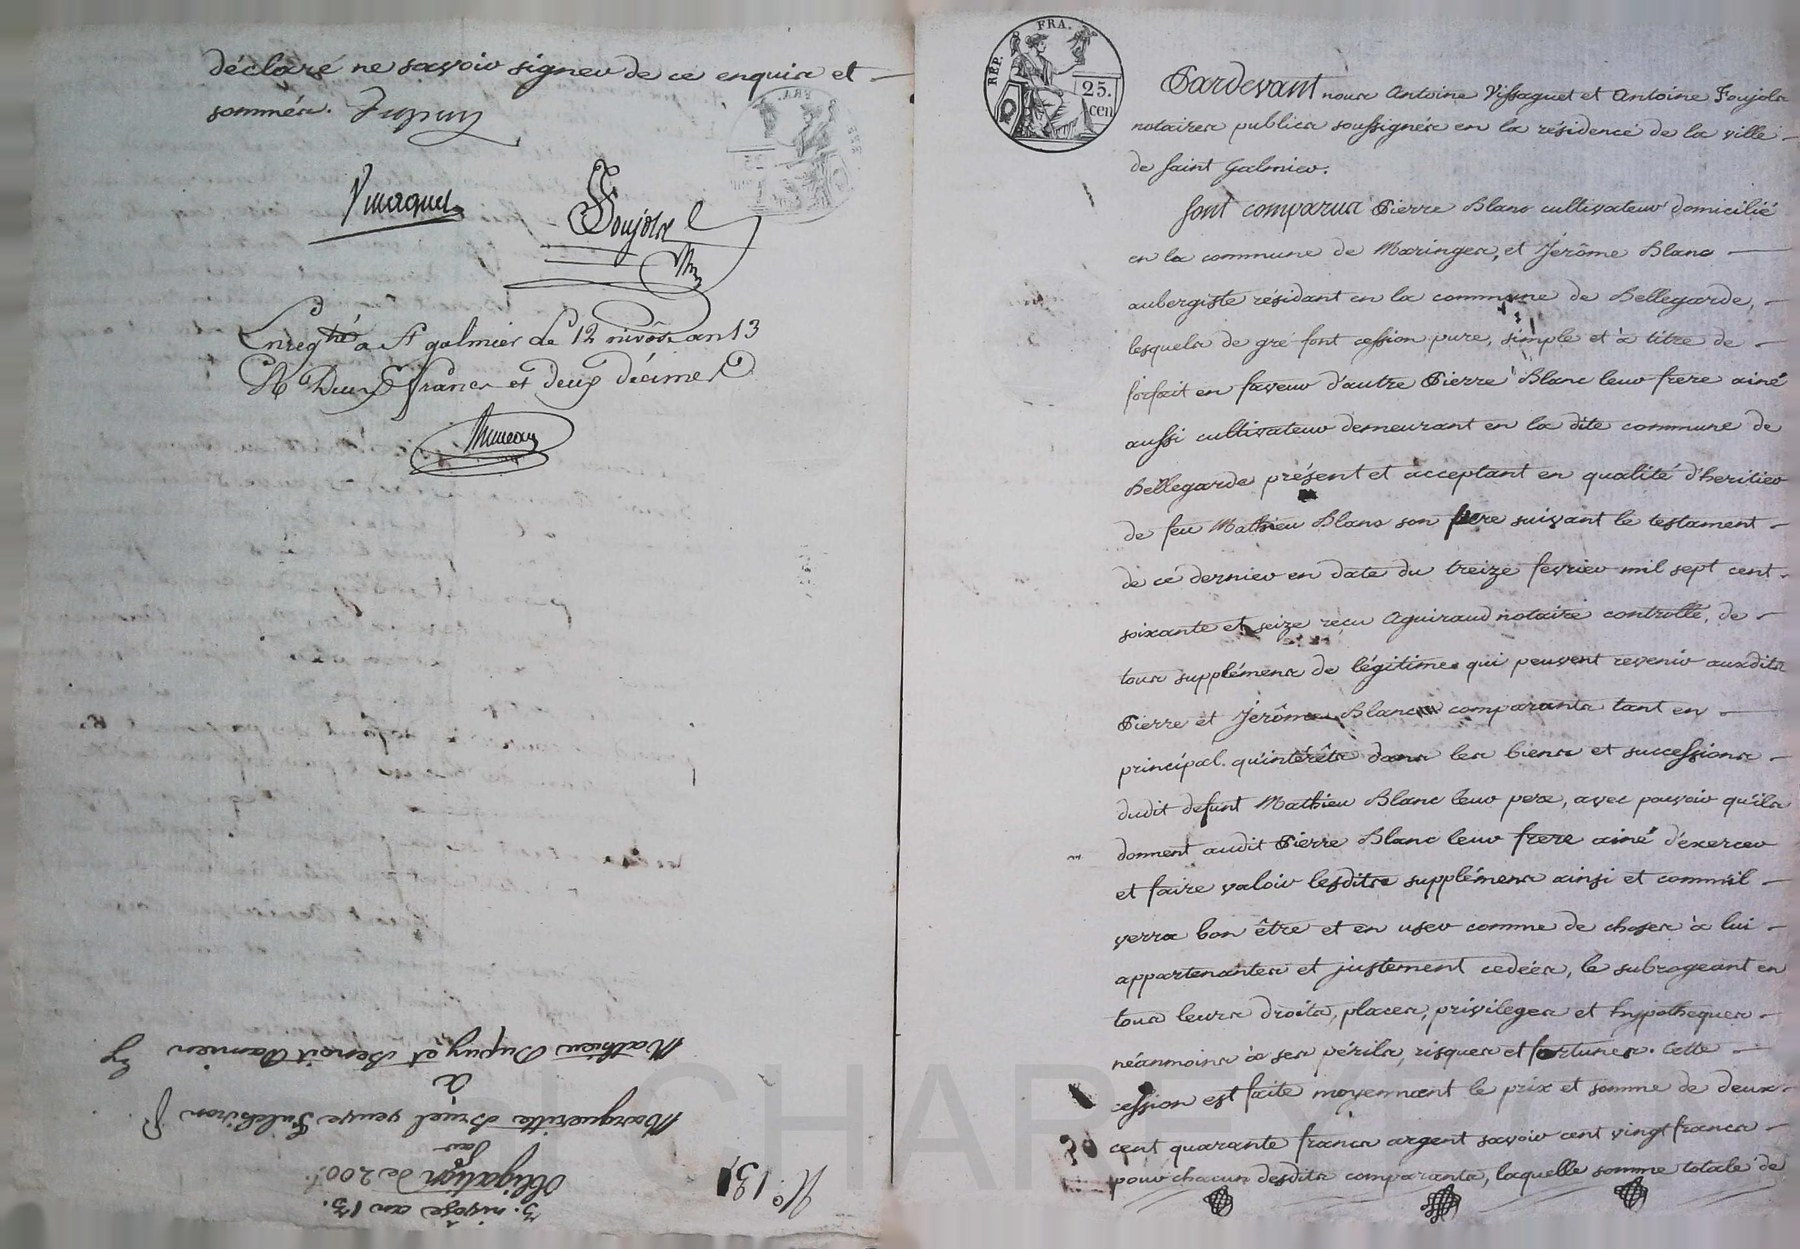 déclaré ne savoir signer de ce enquis et
sommés. Dupuy
Vissaguet
Foujols
Enregtré a St galmier le 12 nivôse an 13
R Deux francs et deux décimes
N°. 131
3. nivose an 13.
Obligation de 200f.
par
Margueritte Bruel veuve
à
Mathieu Dupuy et Benoit
RÉP. FRA.
25.
cen
Pardevant nous Antoine Vissaguet et Antoine Foujols
notaires publics soussignés en la résidence de la ville
de Saint Galmier.
Sont comparus Pierre Blanc cultivateur domicilié
en la commune de Maringes, et Jerôme Blanc
aubergiste résidant en la commune de Bellegarde,
lesquels de gré font cession pure, simple et à titre de
forfait en faveur d'autre Pierre Blanc leur frere ainé
aussi cultivateur demeurant en la dite commune de
Bellegarde présent et acceptant en qualité d'heritier
de feu Mathieu Blanc son pere suivant le testament
de cé dernier en date du treize fevrier mil sept cent
soixante et seize reçu Aguiraud notaire controllé, de
tous supplémens de légitimes qui peuvent revenir auxdits
Pierre et Jerôme Blanc comparants tant en
principal qu'intérêts dans les biens et successions
dudit defunt Mathieu Blanc leur pere, avec pouvoir qu'ils
donnent audit Pierre Blanc leur frere ainé d'exercer
et faire valoir lesdits supplémens ainsi et comm'il
verra bon être et en user comme de choses à lui
appartenantes et justement cedées, le subrogeant en
tous leurs droits, places, privileges et hypotheques
néanmoins à ses périls, risques et fortunes. Cette
cession est faite moyennant le prix et somme de deux
cent quarante francs argent savoir cent vingt francs
pour chacun desdits comparants, laquelle somme totale de